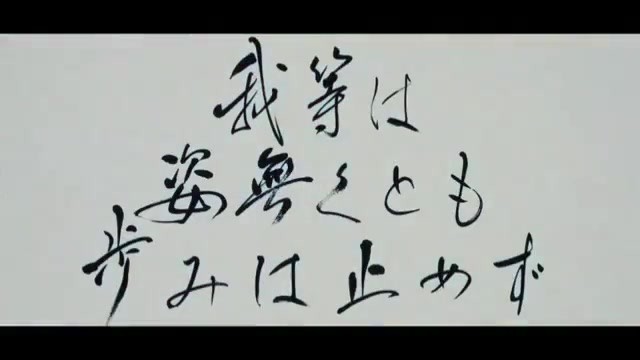 我等は
姿無くとも
歩みは止めず